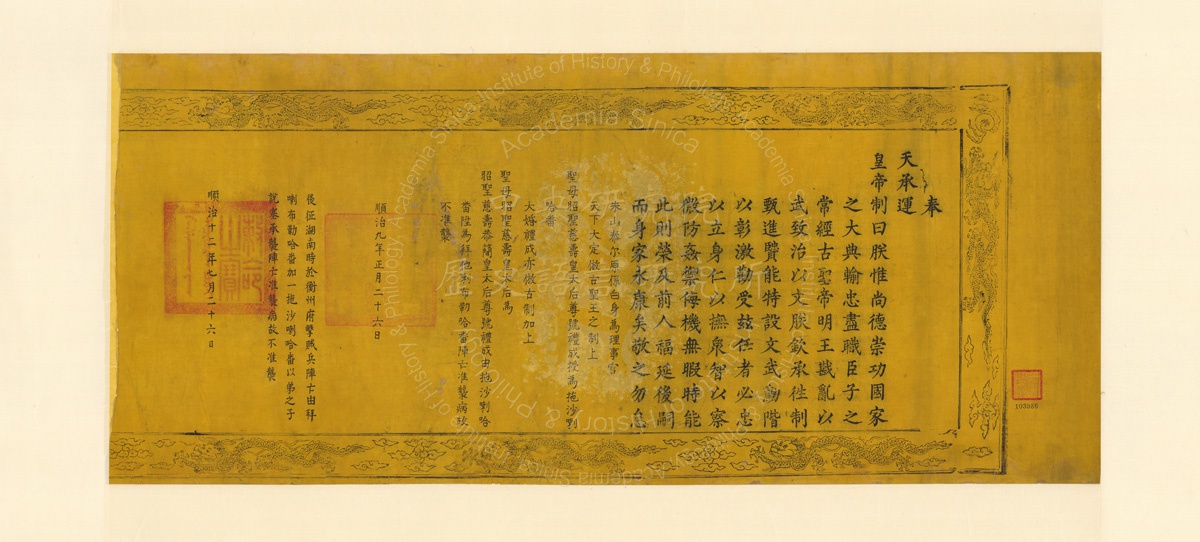 奉
天承運
皇帝制曰朕惟尚德崇功國家
之大典輸忠盡職臣子之
常經古聖帝明王戡亂以
武致治以文朕欽承往制
甄進賢能特設文武勳階
以彰激勸受茲任者必忠
以立身仁以撫衆智以察
微防姦禦侮機無暇時能
此則榮及前人福延後嗣
而身家永康矣敬之勿怠
係白身為理事官
天下大定倣古聖王之制上
聖母昭聖慈壽皇太后尊號禮成授為拖沙剌
哈番
大婚禮成亦倣古制加上
聖母昭聖慈壽皇太后為
昭聖慈壽恭簡皇太后尊號禮成由拖沙剌哈
當陞為拜他剌布勒哈番陣亡准襲病故
不准襲
順治九年正月二十六日
後征湖南時於衡州府擊賊兵陣亡由拜
喇布勒哈番加一拖沙喇哈番以弟之子
承襲陣亡准襲病故不准襲
順治十二年九月二十六日
Academia Sinica
Institute of History & Philology, Academia Sinica